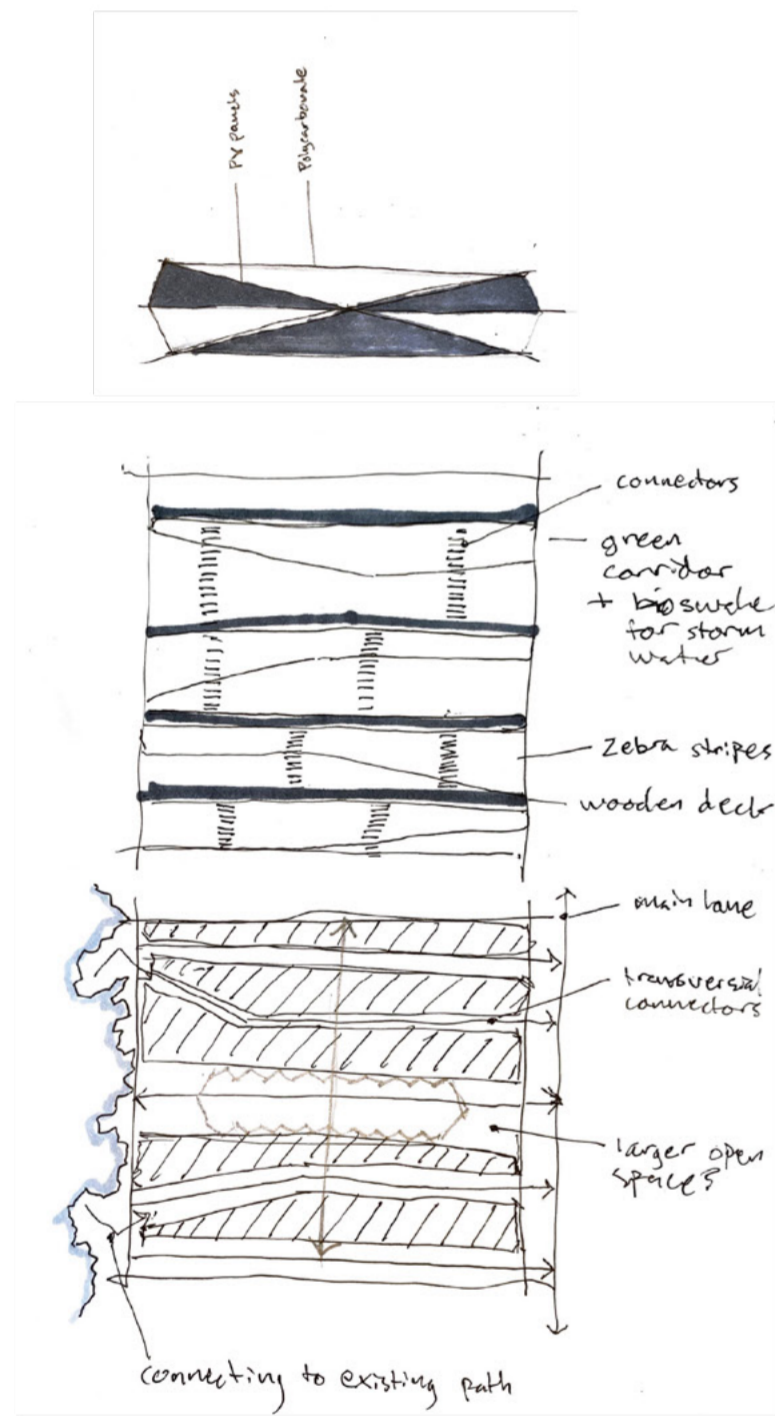 PV panels
Polycarbonate
connectors
green
corridor
+ bioswale
for storm
water
Zebra stripes
wooden deck
main lane
transversal
connectors
larger open
spaces
connecting to existing path